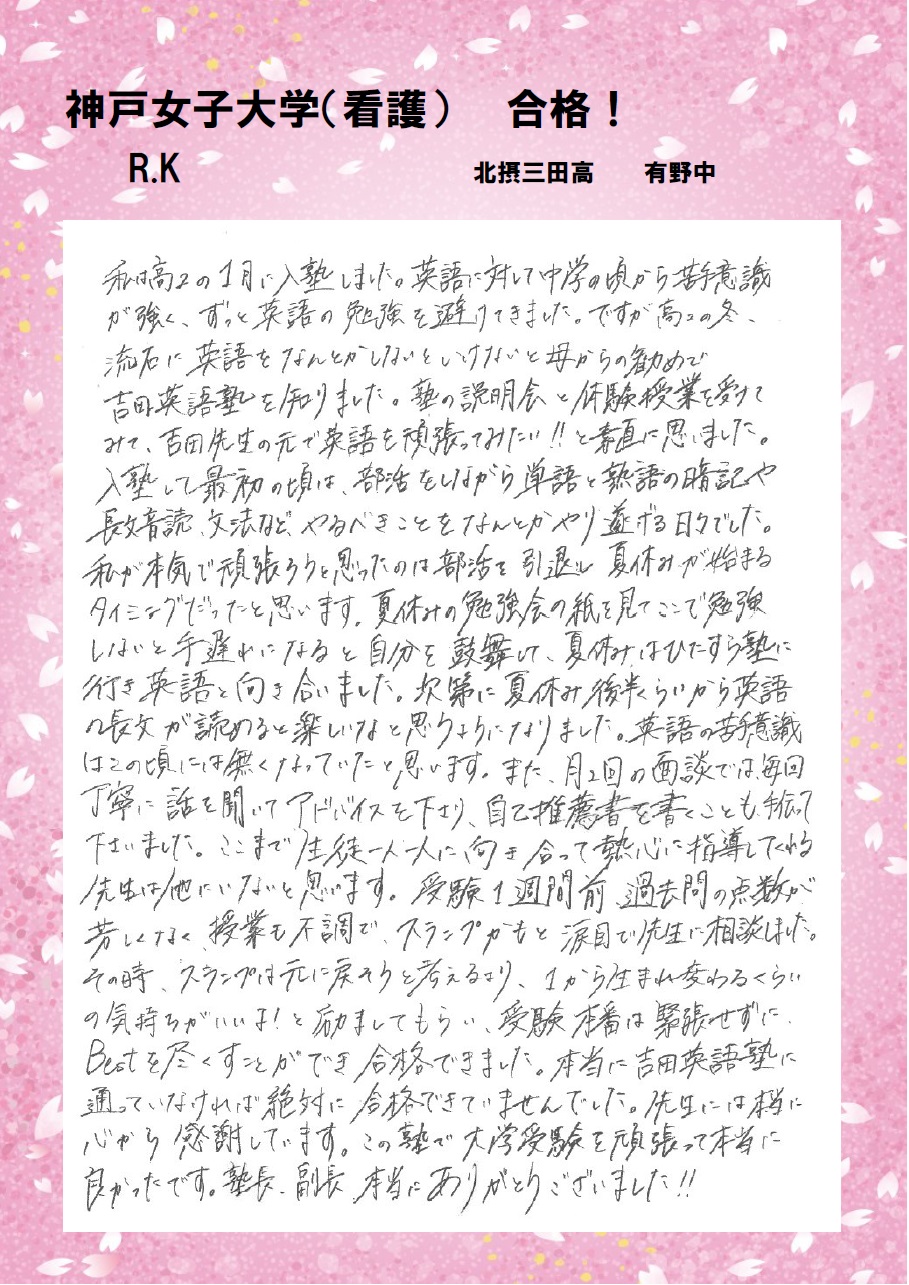 神戸女子大学（看護） 合格！
R.K 北摂三田高 有野中
私は高2の1月に入塾しました。英語に対して中学の頃から苦手意識
が強く、ずっと英語の勉強を避けてきました。ですが高2の冬、
流石に英語をなんとかしないといけないと母からの勧めで
吉田英語塾を知りました。塾の説明会と体験授業を受けて
みて、吉田先生の元で英語を頑張ってみたい!!と素直に思いました。
入塾して最初の頃は、部活をしながら単語と熟語の暗記や
長文音読、文法など、やるべきことをなんとかやり遂げる日々でした。
私が本気で頑張ろうと思ったのは部活を引退し夏休みが始まる
タイミングだったと思います。夏休みの勉強会の紙を見てここで勉強
しないと手遅れになると自分を鼓舞して、夏休みはひたすら塾に
行き英語と向き合いました。次第に夏休み後半くらいから英語
の長文が読めると楽しいなと思うようになりました。英語の苦手意識
はこの頃には無くなっていたと思います。また、月2回の面談では毎回
丁寧に話を聞いてアドバイスを下さり、自己推薦書を書くことも手伝って
下さいました。ここまで生徒一人一人に向き合って熱心に指導してくれる
先生は他にいないと思います。受験1週間前過去問の点数が
芳しくなく、授業も不調で、スランプかもと涙目で先生に相談しました。
その時、スランプは元に戻そうと考えるより、1から生まれ変わるくらい
の気持ちがいいよ!と励ましてもらい、受験本番は緊張せずに、
Bestを尽くすことができ合格できました。本当に吉田英語塾に
通っていなければ絶対に合格できていませんでした。先生には本当に
心から感謝しています。この塾で大学受験を頑張って本当に
良かったです。塾長、副長、本当にありがとうございました!!